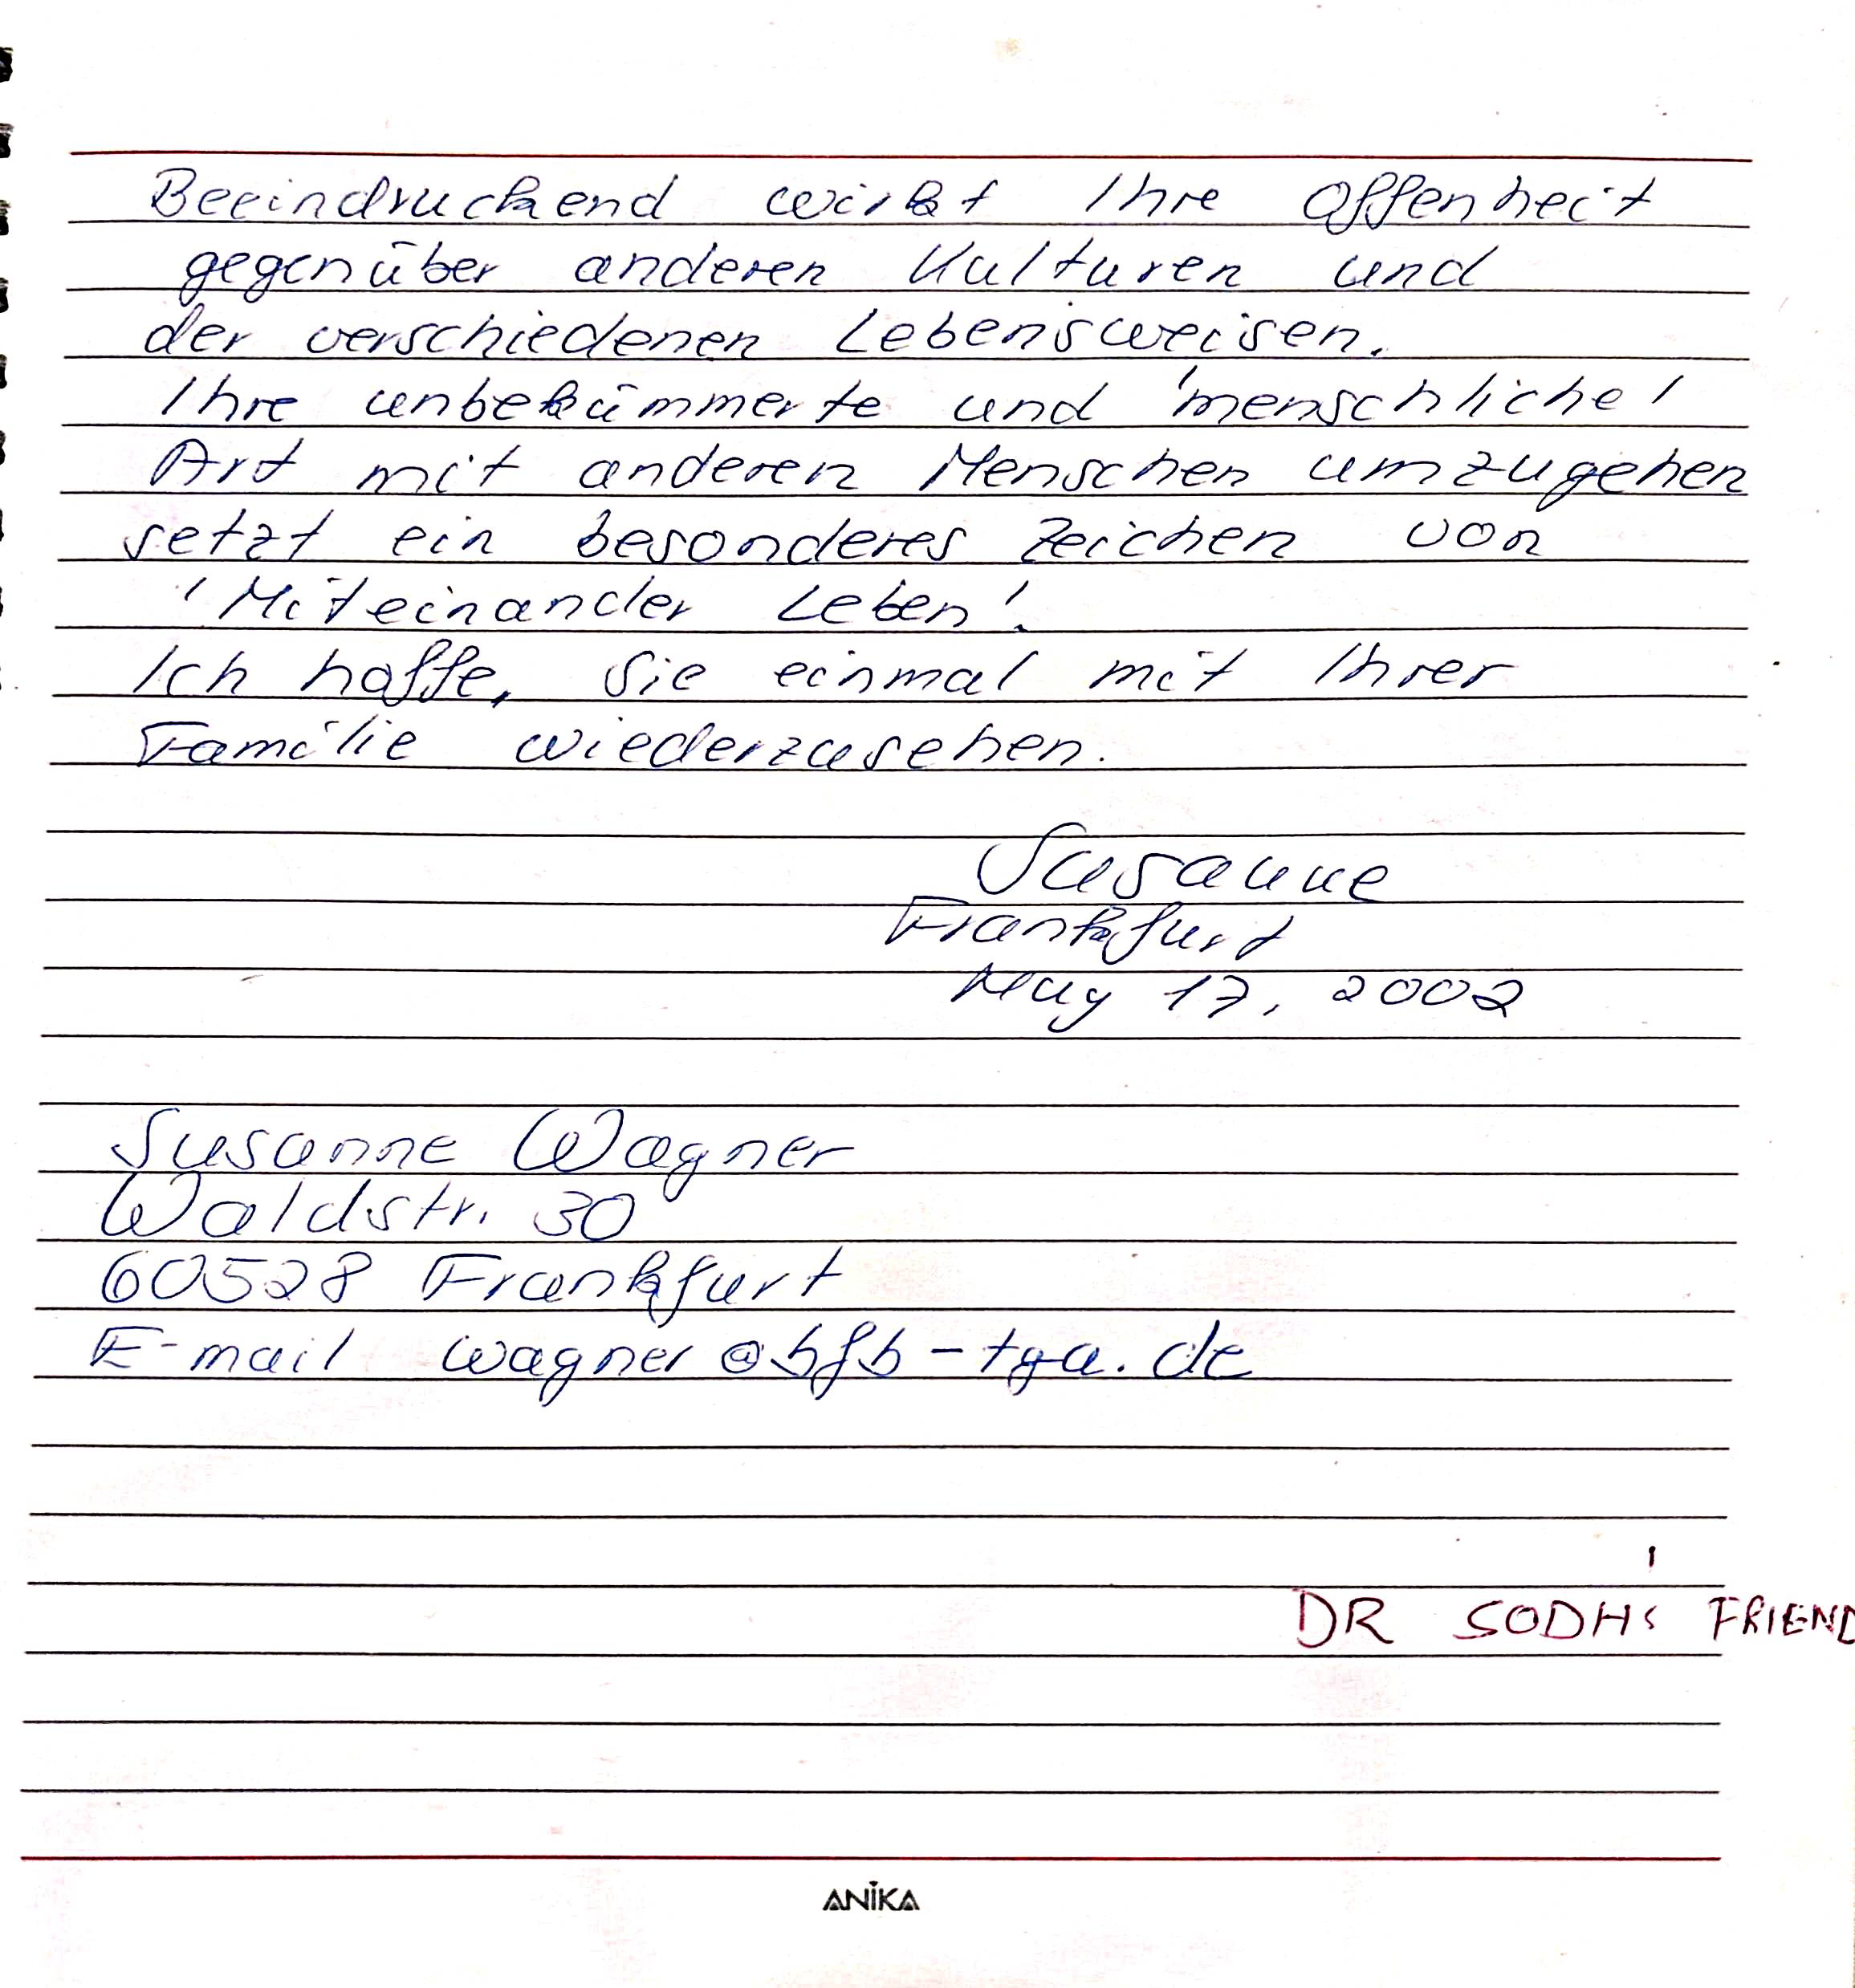 Beeindruckend wirkt Ihre Offenheit
gegenüber anderen Kulturen und
der verschiedenen Lebensweisen.
Ihre unbekümmerte und 'menschliche'
Art mit anderen Menschen umzugehen
setzt ein besonderes Zeichen von
'Miteinander Leben'.
Ich hoffe, Sie einmal mit Ihrer
Familie wiederzusehen.
Susanne
Frankfurt
May 17, 2002
Susanne Wagner
Waldstr. 30
60528 Frankfurt
E-mail wagner@bfb-tga.de
DR SODHI'S FRIEND
ANIKA